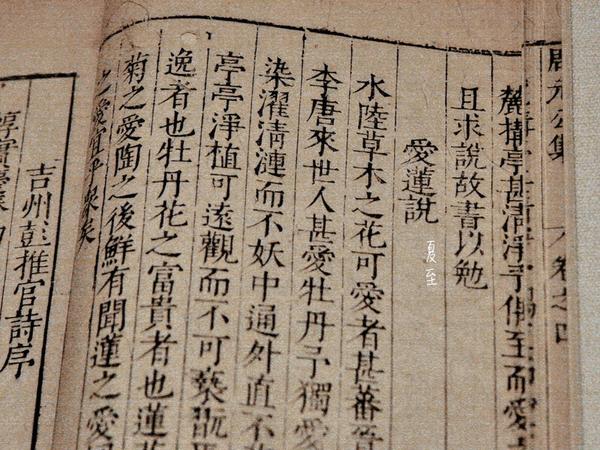 周元公集 卷之四
麓構亭甚清淨予偶至而愛
且求說故書以勉
愛蓮說
夏至
水陸草木之花可愛者甚蕃晉
李唐來世人甚愛牡丹予獨愛
染濯清漣而不妖中通外直不
亭亭淨植可遠觀而不可褻翫
逸者也牡丹花之富貴者也蓮
菊之愛陶之後鮮有聞蓮之愛
之愛宜乎衆矣
吉州彭推官詩序